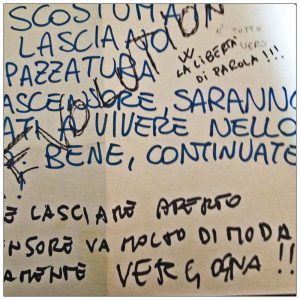 SCOSTUMA
LASCIANO
PAZZATURA
ASCENSORE, SARANNO
ATI A VIVERE NELLO
BENE, CONTINUATE
!
REVOLUTION
E' TUTTO
VERO
W
LA LIBERTÀ
DI PAROLA!!!
E LASCIARE APERTO
ENSORE VA MOLTO DI MODA
AMENTE VERGOGNA!!